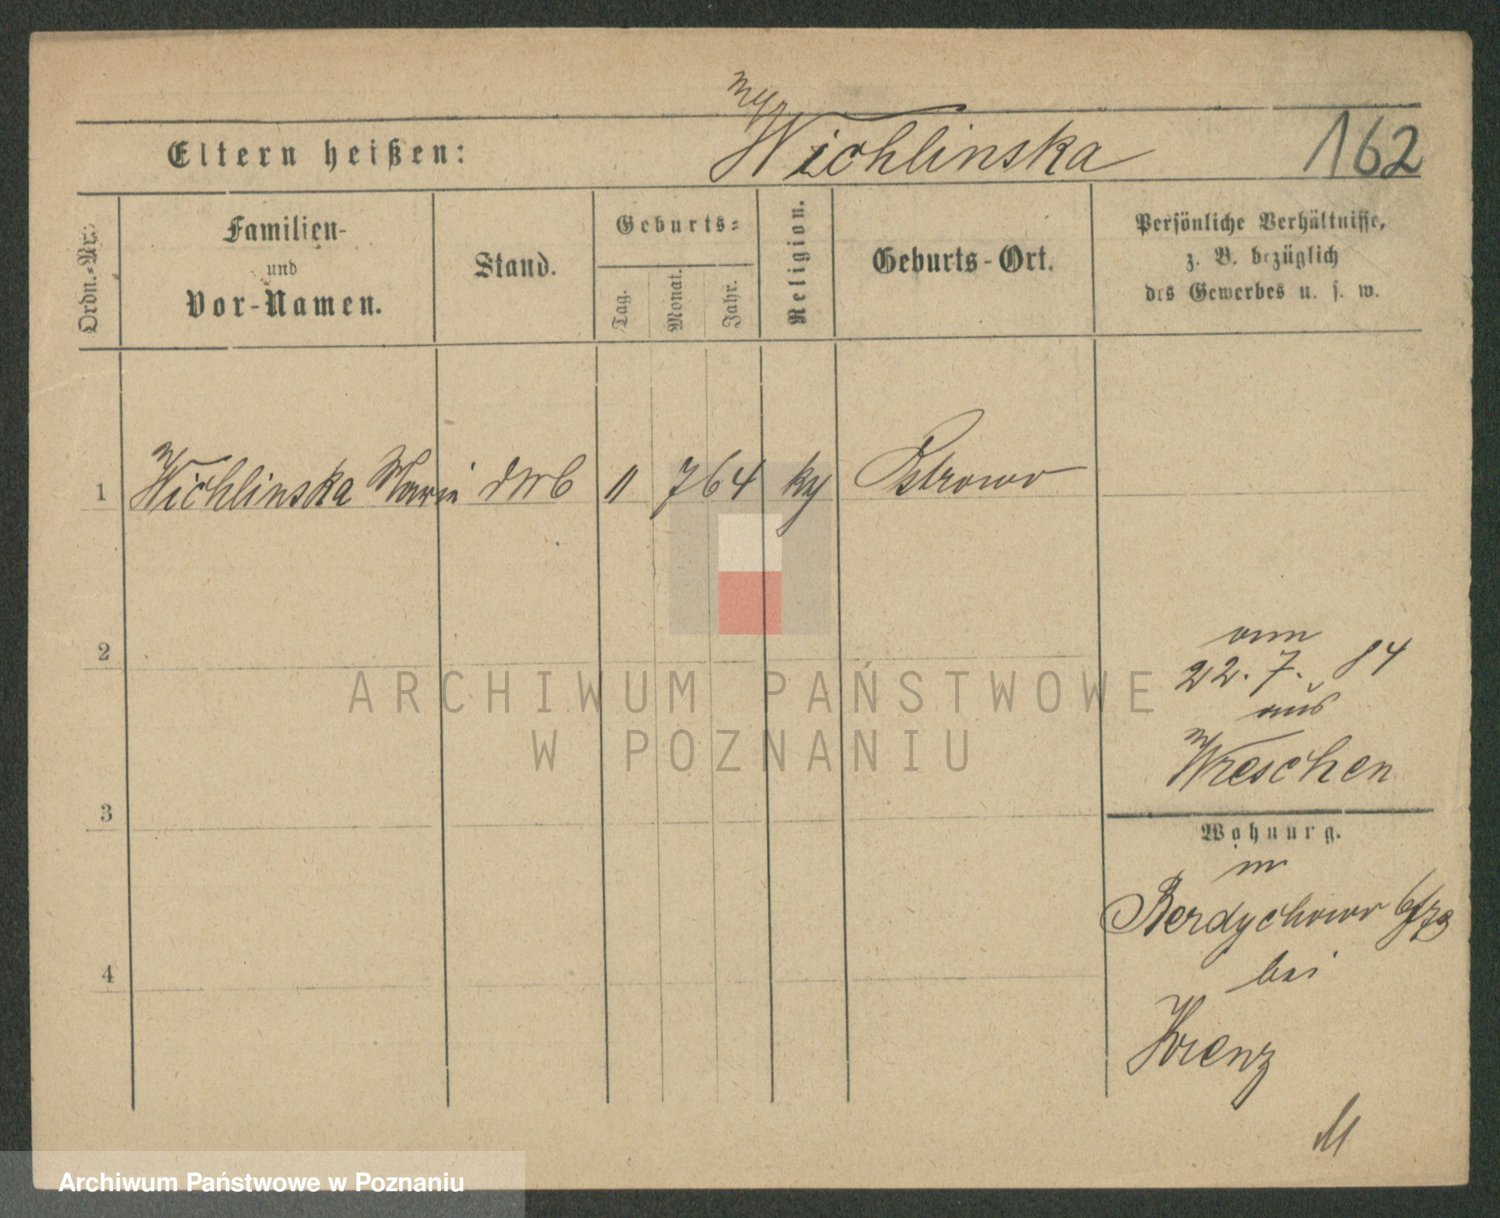 Wichlinska
162
Eltern heißen:
Ordn.-Nr.
Familien-
und
Vor-Namen.
Stand.
Geburts-
Tag.
Monat.
Jahr.
Religion.
Geburts-Ort.
Persönliche Verhältnisse,
z. B. bezüglich
des Gewerbes u. s. w.
1 Wichlinska Marie 11 7 64 Ostrowo
2
3
4
vom
22. 7. 84
aus
Wreschen
Wohnung.
in
Berdychowo
bei
Krenz
ARCHIWUM PAŃSTWOWE
W POZNANIU
Archiwum Państwowe w Poznaniu